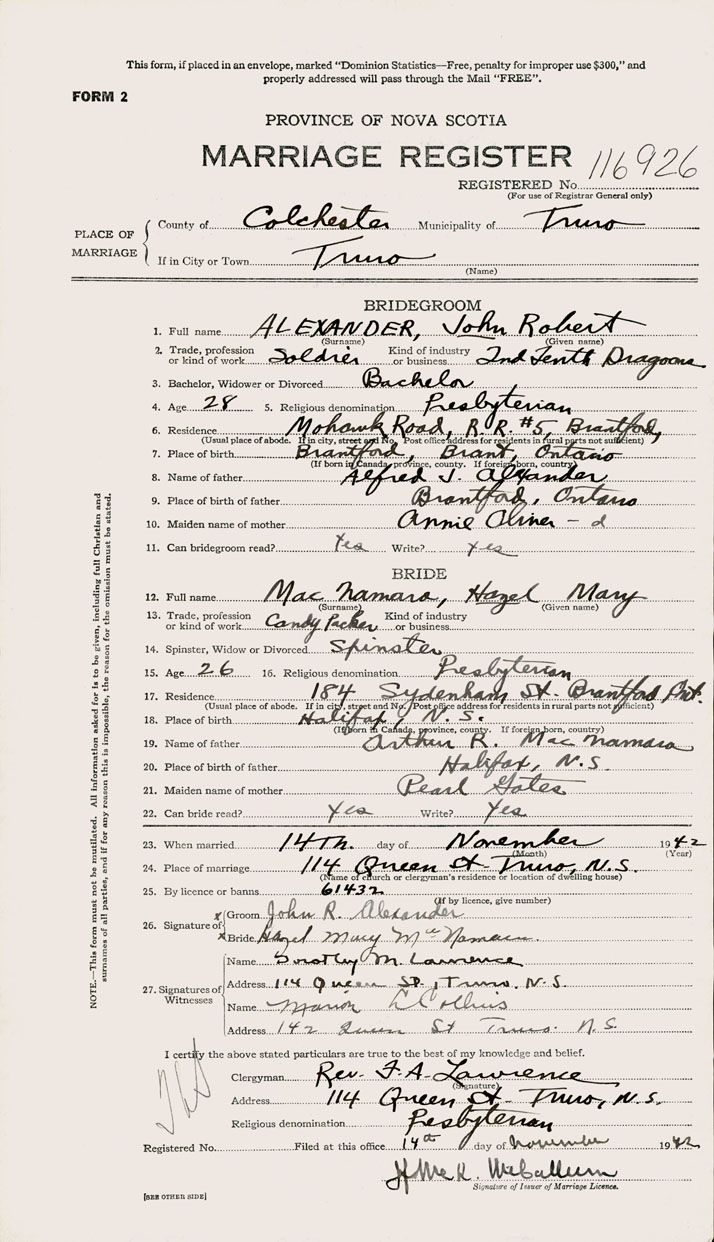 This form, if placed in an envelope, marked "Dominion Statistics—Free, penalty for improper use $300," and
properly addressed will pass through the Mail "FREE".
FORM 2
PROVINCE OF NOVA SCOTIA
MARRIAGE REGISTER
116926
REGISTERED No.
(For use of Registrar General only)
PLACE OF MARRIAGE
County of Colchester Municipality of Truro
If in City or Town Truro
(Name)
BRIDEGROOM
1. Full name ALEXANDER, John Robert
(Surname) (Given name)
2. Trade, profession or kind of work Soldier Kind of industry or business 2nd Tenth Dragoons
3. Bachelor, Widower or Divorced Bachelor
4. Age 28 5. Religious denomination Presbyterian
6. Residence Mohawk Road, R.R. #5, Brantford,
(Usual place of abode. If in city, street and No. Post office address for residents in rural parts not sufficient)
7. Place of birth Brantford, Brant, Ontario
(If born in Canada, province, county. If foreign born, country)
8. Name of father Alfred J. Alexander
9. Place of birth of father Brantford, Ontario
10. Maiden name of mother Annie - d
11. Can bridegroom read? Yes Write? Yes
BRIDE
12. Full name Mac Namara, Hazel Mary
(Surname) (Given name)
13. Trade, profession or kind of work Candy Packer Kind of industry or business
14. Spinster, Widow or Divorced Spinster
15. Age 26 16. Religious denomination Presbyterian
17. Residence 184 Sydenham St. Brantford Ont.
(Usual place of abode. If in city, street and No. Post office address for residents in rural parts not sufficient)
18. Place of birth Halifax, N.S.
(If born in Canada, province, county. If foreign born, country)
19. Name of father Arthur R. Mac Namara
20. Place of birth of father Halifax, N.S.
21. Maiden name of mother Pearl Gates
22. Can bride read? Yes Write? Yes
23. When married 14Th. day of November 1942
(Month) (Year)
24. Place of marriage 114 Queen St Truro, N.S.
(Name of church or clergyman's residence or location of dwelling house)
25. By licence or banns 61432
(If by licence, give number)
26. Signature of
x Groom John R. Alexander
x Bride Hazel Mary McNamara.
27. Signatures of Witnesses
Name Dorothy M. Lawrence
Address 114 Queen St., Truro, N.S.
Name Marion E Collins
Address 142 Queen St Truro. N.S.
I certify the above stated particulars are true to the best of my knowledge and belief.
Clergyman Rev. F. A. Lawrence
(Signature)
Address 114 Queen St. Truro, N.S.
Religious denomination Presbyterian
Registered No. Filed at this office 14th day of November 1942
McCallum
Signature of Issuer of Marriage Licence.
[SEE OTHER SIDE]
NOTE.—This form must not be mutilated. All information asked for is to be given, including full Christian and
surnames of all parties, and if for any reason this is impossible, the reason for the omission must be stated.